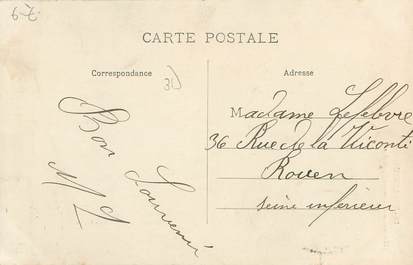 CARTE POSTALE
Correspondance
Adresse
Bon
Souvenir
Madame Lefebvre
36 Rue de la Viconté
Rouen
Seine inférieure